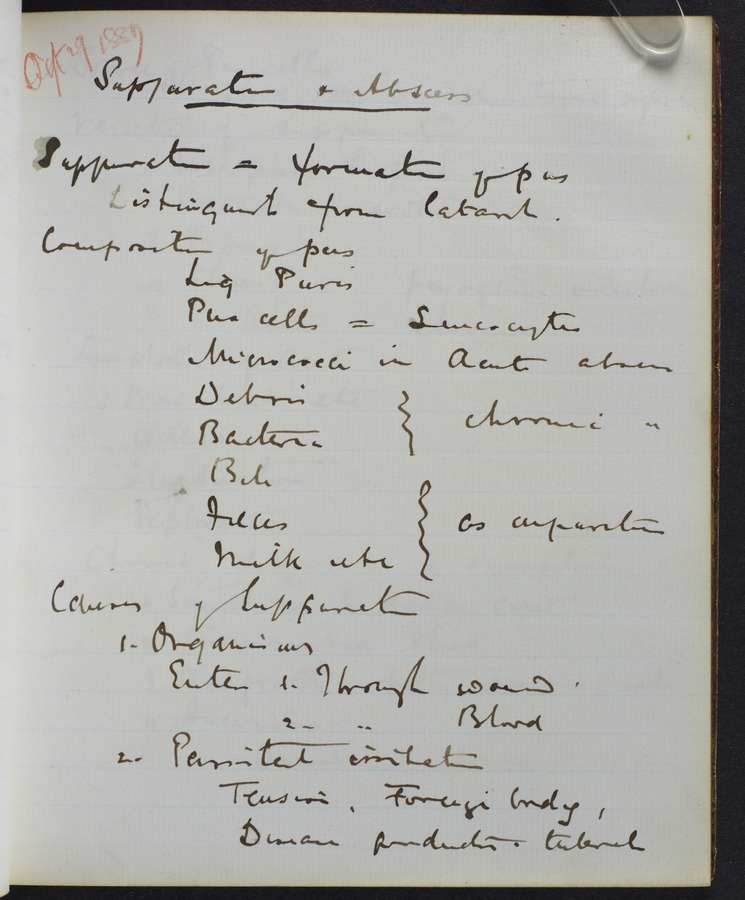 Oct 29 1889
Suppuration & Abscess
Suppuration = formation of pus
Distinguish from Catarrh.
Composition of pus
Liq Puris
Pus cells = Leucocytes
Micrococci in Acute abscess
Debris
Bacteria } chronic "
Bile
Faeces } as
Milk etc
Causes of Suppuration
1. Organisms
Enter 1. Through wound
2. " Blood
2. Persistent irritation
Tension, Foreign body,
Disease products - tubercle